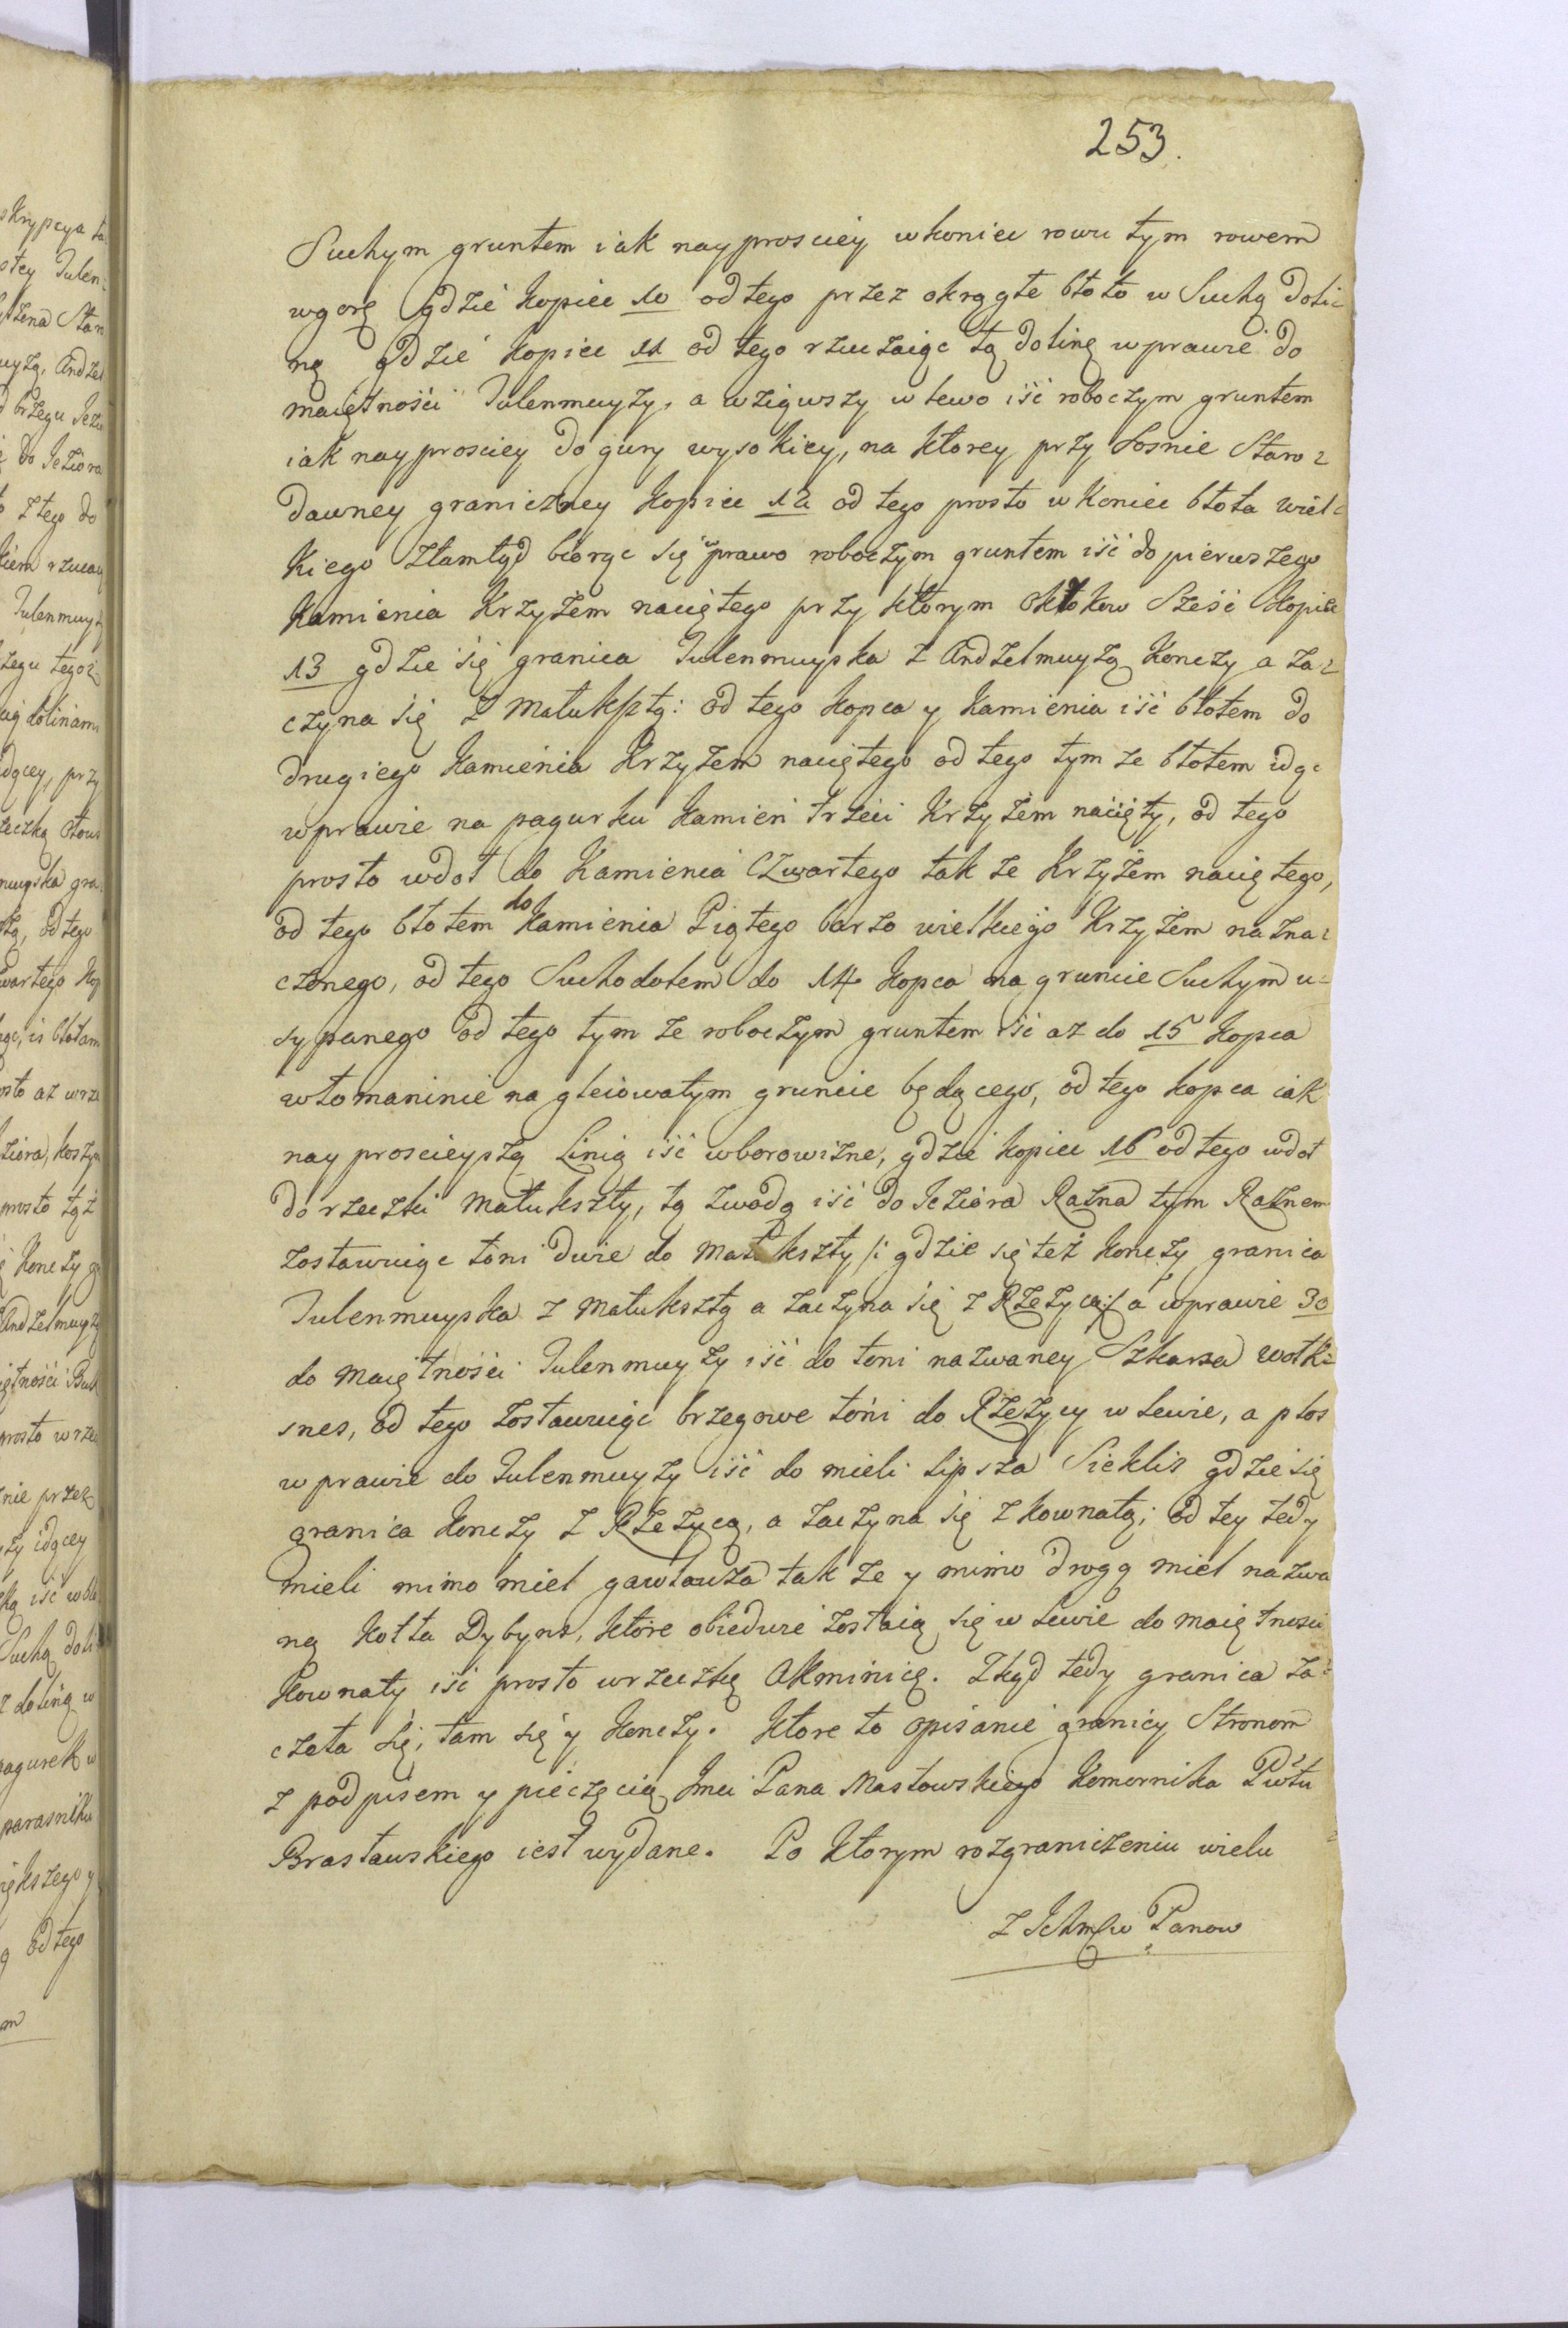 253.
Suchym gruntem iak nayprosciey wkoniec rowu tym rowem
wgorę gdzie kopiec 10 od tego przez okrągłe błoto w Suchą doli=
nę gdzie kopiec 11 od tego rzucaiąc tą dolinę wprawie do
maiętności Julenmuyży, a wziąwszy w lewo iść roboczym gruntem
iak nayprosciey do gury wysokiey, na ktorey przy Sosnie Staro=
dawney graniczney kopiec 12 od tego prosto w koniec błota wiel=
kiego ztamtąd biorąc się w prawo roboczym gruntem iść do pierwszego
kamienia Krzyżem naciętego przy ktorym okłokow Sześć kopiec
13 gdzie się granica Julenmuyska z Andzelmuyżą konczy a za=
czyna się z Matuksztą: od tego kopca y kamienia iść błotem do
drugiego kamienia Krzyżem naciętego od tego tym ze błotem idąc
wprawie na pagurku kamień trzeci Krzyżem nacięty, od tego
prosto wdoł do kamienia Czwartego tak ze Krzyżem naciętego,
od tego błotem do kamienia Piątego barzo wielkiego Krzyżem nazna=
czonego, od tego Suchodołem do 14 kopca na gruncie Suchym u=
sypanego od tego tym ze roboczym gruntem iść az do 15 kopca
włomaninie na gleiowatym gruncie będącego, od tego kopca iak
nayprostieyszą Linią iść wborowizne, gdzie kopiec 16 od tego wdoł
do rzeczki Matukszty, tą zwodą iść do Jeziora Razna tym Raznem
zostawuiąc toni dwie do Matukszty /: gdzie się też konczy granica
Julenmuyska z Matuksztą a zaczyna się z Rzezycą :/ a wprawie 30
do Maiętności Julenmuyży iść do toni nazwaney Szkarsa wolki=
snes, od tego zostawuiąc brzegowe tońi do Rzeżycy w lewie, a płos
w prawie do Julenmuyży iść do mieli Lipsza Sieklis gdzie się
granica konczy z Rzezycą, a zaczyna się z kownatą; od tey tedy
mieli mimo miel gawłauza tak ze y mimo drogą miel nazwa
ną kołta Dybyns, ktore obiedwie zostaią się w lewie do maiętnosci
kownaty iść prosto wrzeczkę Akminicę. Zkąd tedy granica za=
częła się, tam się y konczy. Ktore to opisanie granicy Stronom
z podpisem y pieczęcią Jmci Pana Masłowskiego Komornika Pwtu
Brasławskiego iest wydane. Po ktorym rozgraniczeniu wielu
z Ichmciw Panow